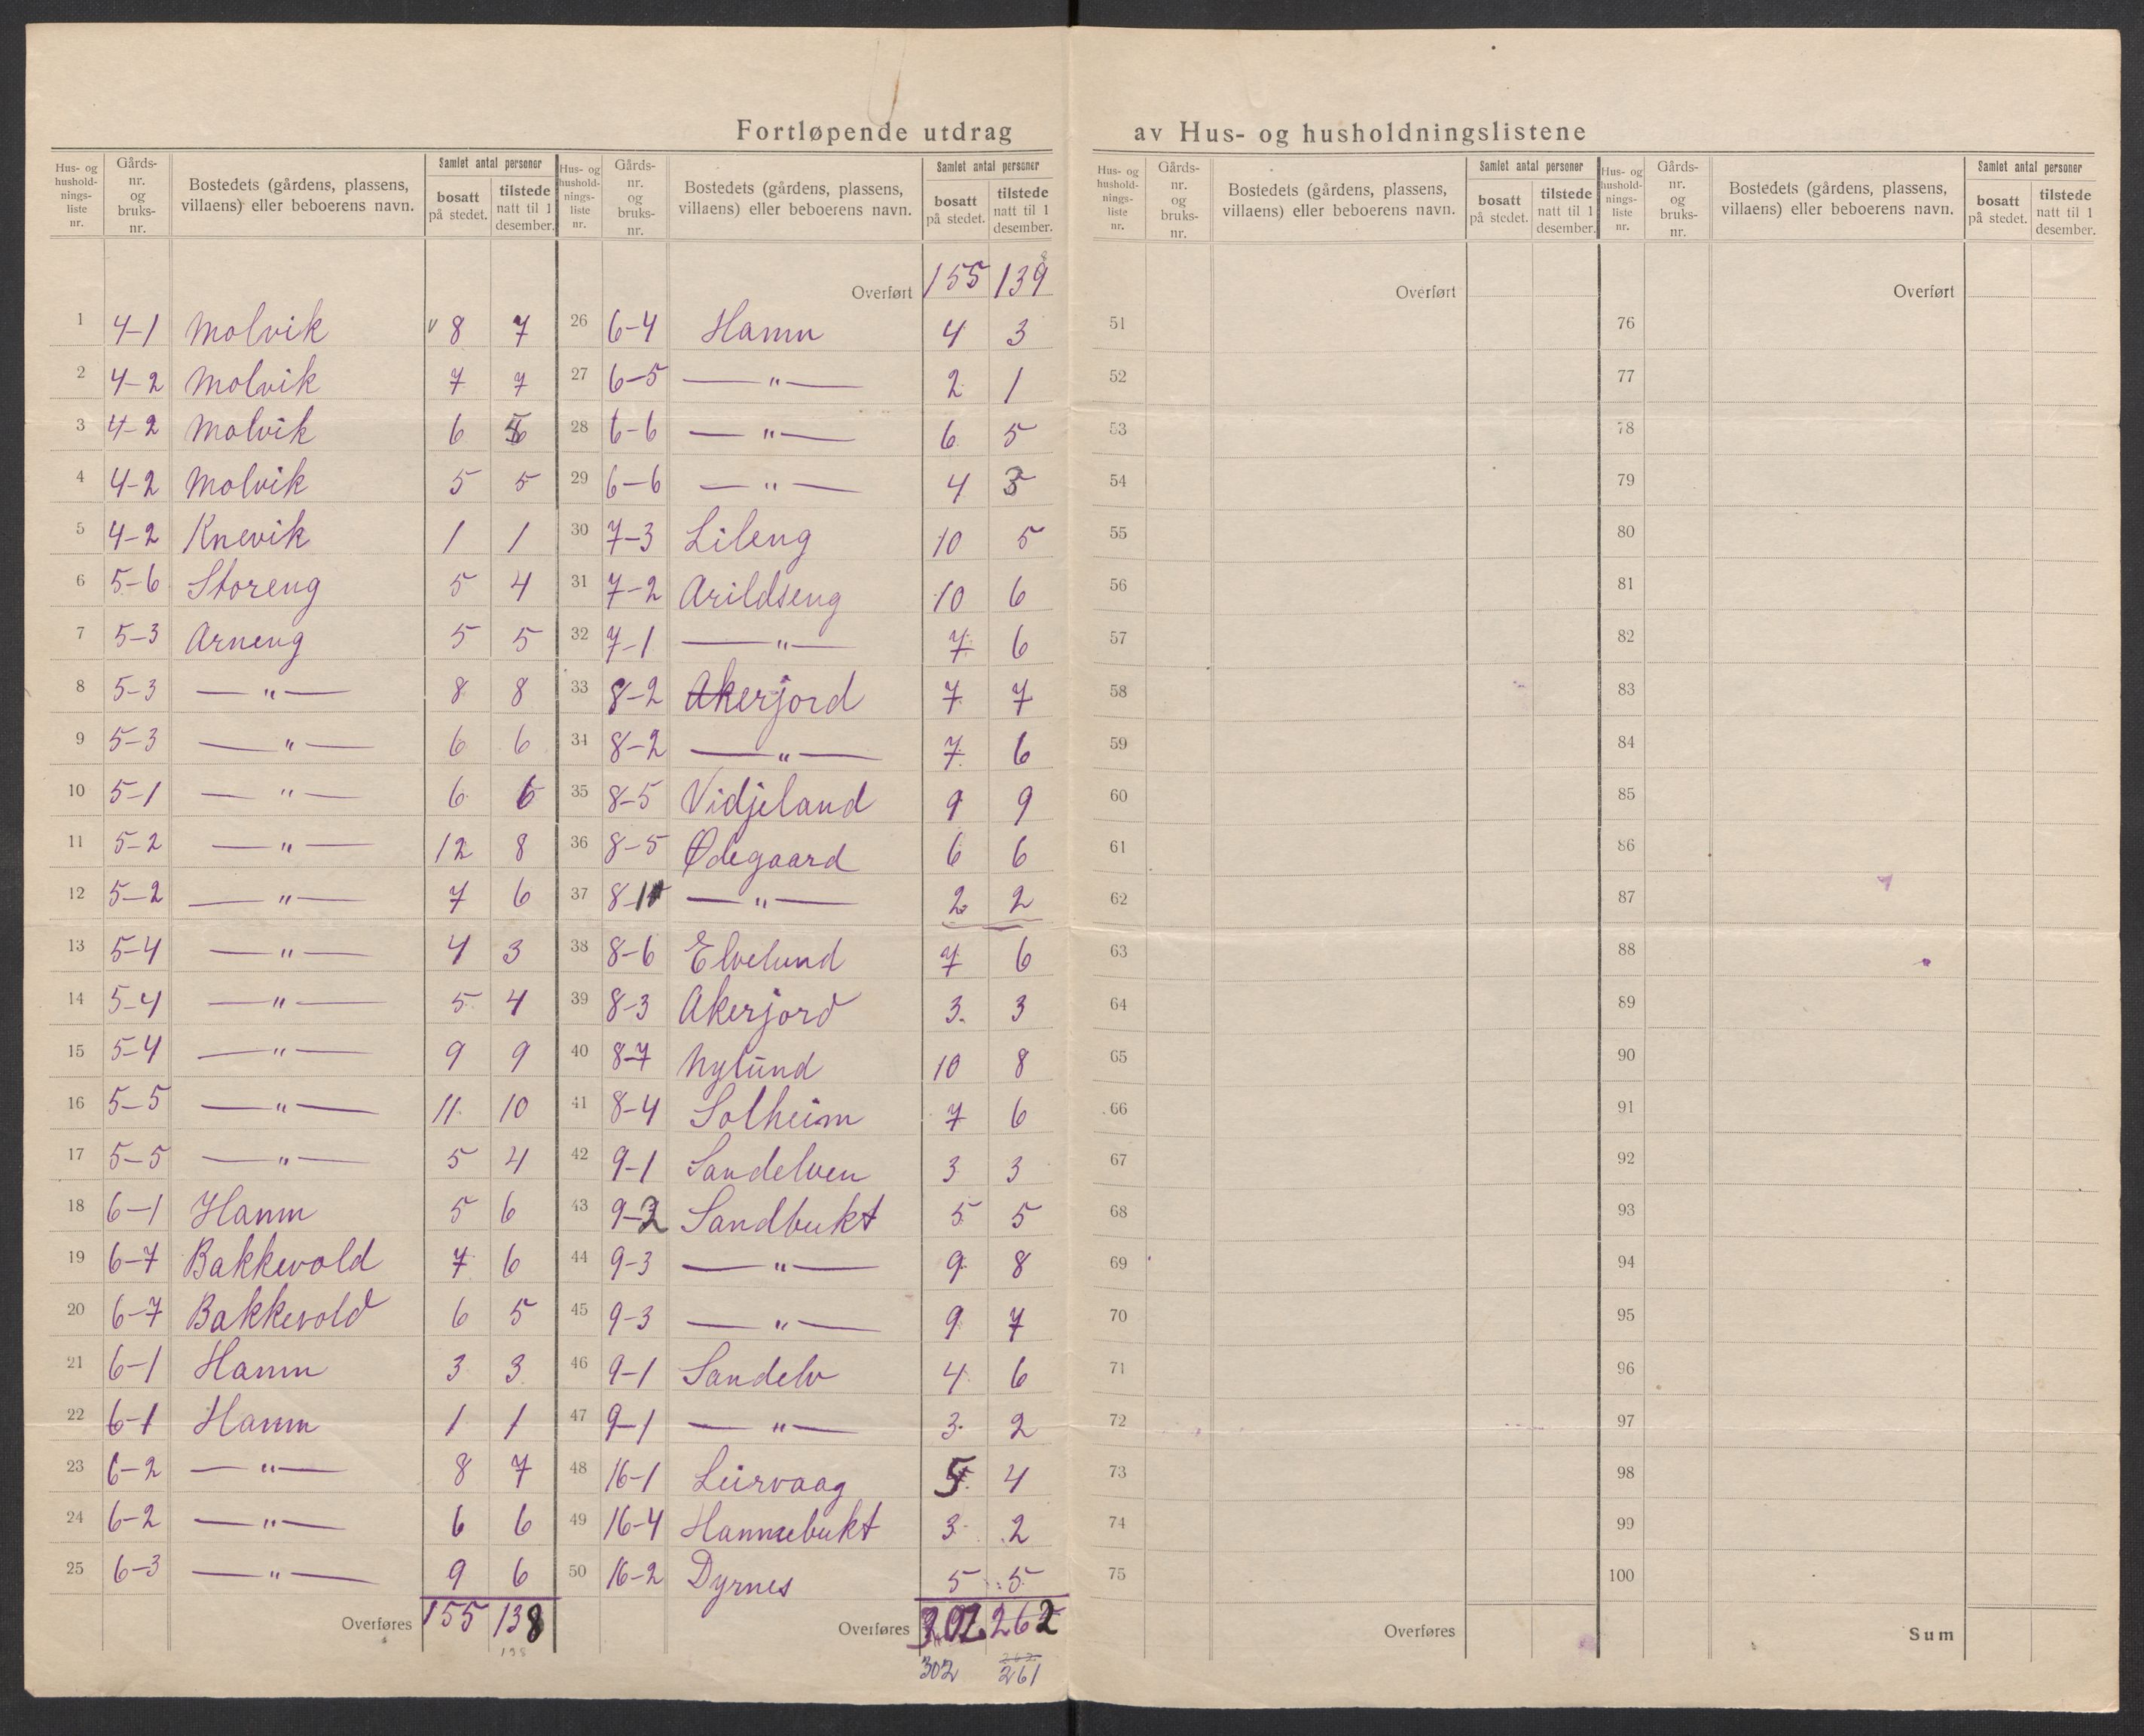 Fortløpende utdrag av Hus- og husholdningslistene
Hus- og husholdnings-liste nr. | Gårds-nr. og bruks-nr. | Bostedets (gårdens, plassens, villaens) eller beboerens navn. | Samlet antal personer | bosatt på stedet. | tilstede natt til 1 desember.
1 4-1 Molvik v 8 7
2 4-2 Molvik 7 7
3 4-2 Molvik 6 5
4 4-2 Molvik 5 5
5 4-2 Knevik 1 1
6 5-6 Storeng 5 4
7 5-3 Arneng 5 5
8 5-3 — " — 8 8
9 5-3 — " — 6 6
10 5-1 — " — 6 6
11 5-2 — " — 12 8
12 5-2 — " — 7 6
13 5-4 — " — 4 3
14 5-4 — " — 5 4
15 5-4 — " — 9 9
16 5-5 — " — 11 10
17 5-5 — " — 5 4
18 6-1 Hamn 5 6
19 6-7 Bakkevold 7 6
20 6-7 Bakkevold 6 5
21 6-1 Hamn 3 3
22 6-1 Hamn 1 1
23 6-2 — " — 8 7
24 6-2 — " — 6 6
25 6-3 — " — 9 6
Overføres 155 138
Hus- og husholdnings-liste nr. | Gårds-nr. og bruks-nr. | Bostedets (gårdens, plassens, villaens) eller beboerens navn. | Samlet antal personer | bosatt på stedet. | tilstede natt til 1 desember.
Overført 155 139 8
26 6-4 Hamn 4 3
27 6-5 — " — 2 1
28 6-6 — " — 6 5
29 6-6 — " — 4 3
30 7-3 Lileng 10 5
31 7-2 Arildseng 10 6
32 7-1 — " — 7 6
33 8-2 Akerjord 7 7
34 8-2 — " — 7 6
35 8-5 Vidjeland 9 9
36 8-5 Ødegaard 6 6
37 — " — 2 2
38 8-6 Elvelund 7 6
39 8-3 Akerjord 3 3
40 8-7 Nylund 10 8
41 8-4 Solheim 7 6
42 9-1 Sandelven 3 3
43 9-2 Sandbukt 5 5
44 9-3 — " — 9 8
45 9-3 — " — 9 7
46 9-1 Sandelv 4 6
47 9-1 — " — 3 2
48 16-1 Leirvaag 5 4
49 16-4 Hannebukt 3 2
50 16-2 Dyrnes 5 5
Overføres 302 262
302 262 261
Hus- og husholdnings-liste nr. | Gårds-nr. og bruks-nr. | Bostedets (gårdens, plassens, villaens) eller beboerens navn. | Samlet antal personer | bosatt på stedet. | tilstede natt til 1 desember.
Overført
51
52
53
54
55
56
57
58
59
60
61
62
63
64
65
66
67
68
69
70
71
72
73
74
75
Overføres
Hus- og husholdnings-liste nr. | Gårds-nr. og bruks-nr. | Bostedets (gårdens, plassens, villaens) eller beboerens navn. | Samlet antal personer | bosatt på stedet. | tilstede natt til 1 desember.
Overført
76
77
78
79
80
81
82
83
84
85
86
87
88
89
90
91
92
93
94
95
96
97
98
99
100
Sum